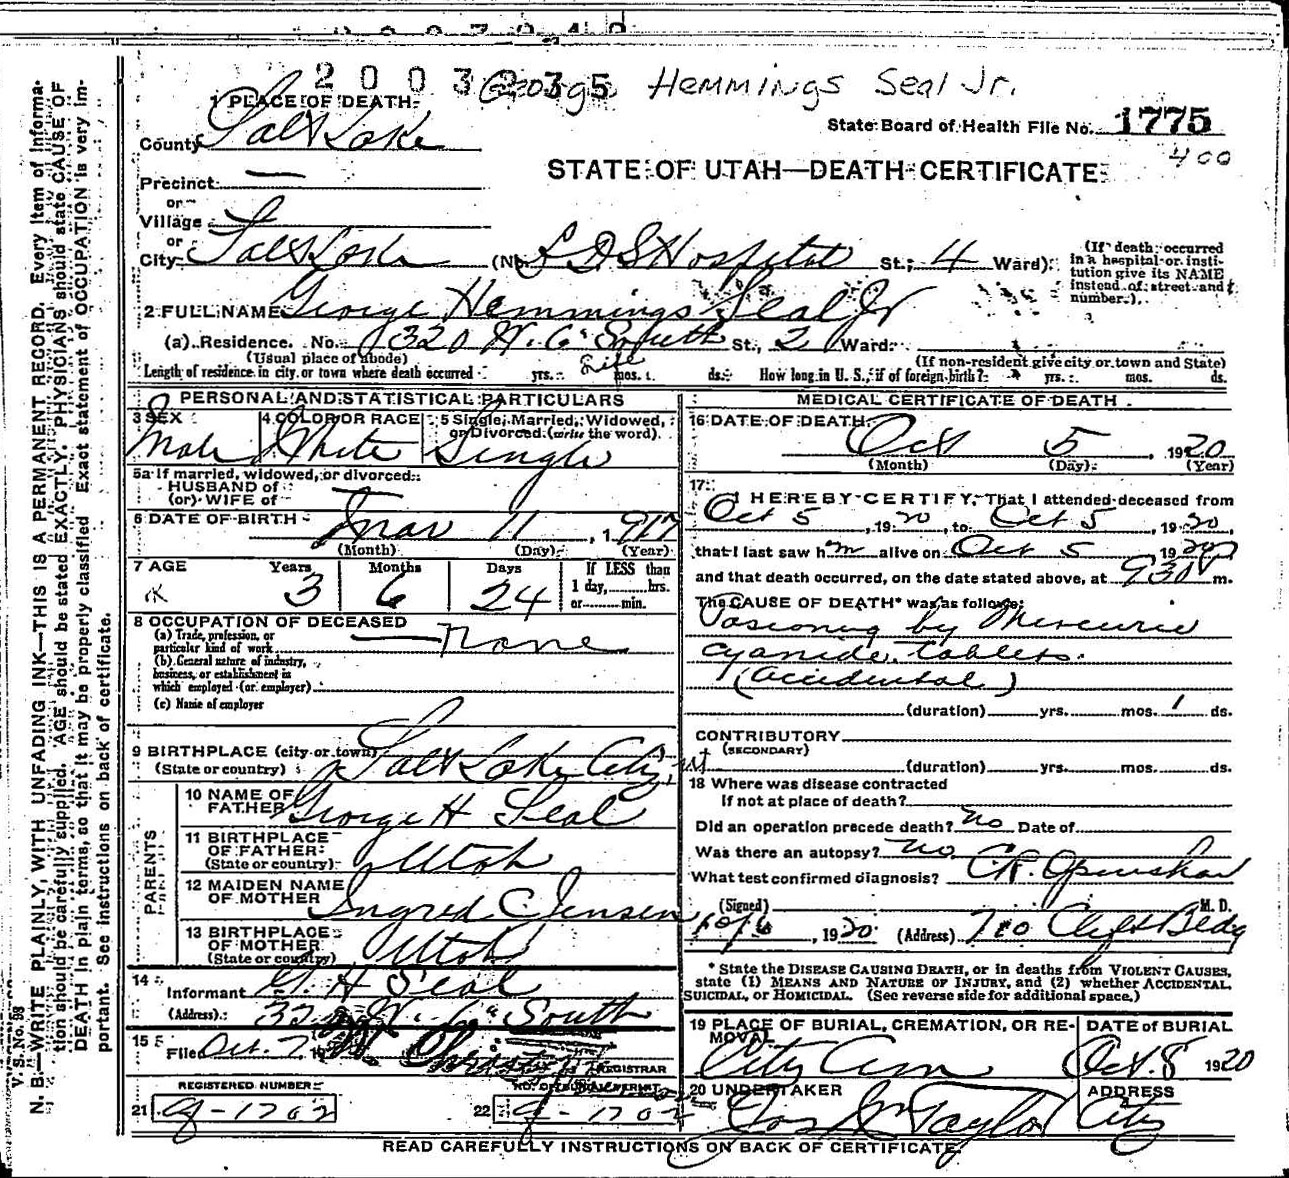 2003235 George Hemmings Seal Jr.
1 PLACE OF DEATH
State Board of Health File No. 1775
County Salt Lake
400
STATE OF UTAH—DEATH CERTIFICATE
Precinct —
or
Village
or
City Salt Lake (No. L D S Hospital St.; 4 Ward)
(If death occurred in a hospital or institution give its NAME instead of street and number.)
2 FULL NAME George Hemmings Seal Jr
(a) Residence. No. 1320 W. 6" South St., 2 Ward.
(Usual place of abode) (If non-resident give city or town and State)
Length of residence in city or town where death occurred yrs. Life mos. ds. How long in U. S., if of foreign birth? yrs. mos. ds.
PERSONAL AND STATISTICAL PARTICULARS
3 SEX Male
4 COLOR OR RACE White
5 Single, Married, Widowed, or Divorced (write the word). Single
5a If married, widowed, or divorced
HUSBAND of
(or) WIFE of —
6 DATE OF BIRTH Mar 11, 1917
(Month) (Day) (Year)
7 AGE Years 3 Months 6 Days 24 If LESS than 1 day, hrs. or min.
8 OCCUPATION OF DECEASED
(a) Trade, profession, or particular kind of work — none
(b) General nature of industry, business, or establishment in which employed (or employer)
(c) Name of employer
9 BIRTHPLACE (city or town) Salt Lake City, Ut
(State or country)
PARENTS
10 NAME OF FATHER George H Seal
11 BIRTHPLACE OF FATHER Utah
(State or country)
12 MAIDEN NAME OF MOTHER Ingred C Jensen
13 BIRTHPLACE OF MOTHER Utah
(State or country)
14 Informant G. H Seal
(Address) W. 6" South
15 File Oct. 7, 19
REGISTRAR
REGISTERED NUMBER
21 g-1702
NO. OF BURIAL PERMIT
22 g-1702
MEDICAL CERTIFICATE OF DEATH
16 DATE OF DEATH Oct 5, 1920
(Month) (Day) (Year)
17 I HEREBY CERTIFY, That I attended deceased from
Oct 5, 1920, to Oct 5, 1920,
that I last saw him alive on Oct 5 1920
and that death occurred, on the date stated above, at 930 m.
The CAUSE OF DEATH* was as follows:
Posioning by Mercuric
cyanide tablets.
(Accidental)
(duration) yrs. mos. 1 ds.
CONTRIBUTORY
(SECONDARY)
(duration) yrs. mos. ds.
18 Where was disease contracted
If not at place of death?
Did an operation precede death? No Date of
Was there an autopsy? no
What test confirmed diagnosis?
(Signed) C.R. Openshaw M. D.
10/6, 1920 (Address) 710 Clift Bldg
* State the DISEASE CAUSING DEATH, or in deaths from VIOLENT CAUSES,
state (1) MEANS AND NATURE OF INJURY, and (2) whether ACCIDENTAL
SUICIDAL, or HOMICIDAL. (See reverse side for additional space.)
19 PLACE OF BURIAL, CREMATION, OR REMOVAL City Cem
DATE OF BURIAL Oct. 8 1920
20 UNDERTAKER Jos Wm Taylor
ADDRESS City
READ CAREFULLY INSTRUCTIONS ON BACK OF CERTIFICATE
V. S. No. 98
N. B.—WRITE PLAINLY, WITH UNFADING INK—THIS IS A PERMANENT RECORD. Every item of informa-
tion should be carefully supplied. AGE should be stated EXACTLY. PHYSICIANS should state CAUSE OF
DEATH in plain terms, so that it may be properly classified. Exact statement of OCCUPATION is very im-
portant. See instructions on back of certificate.